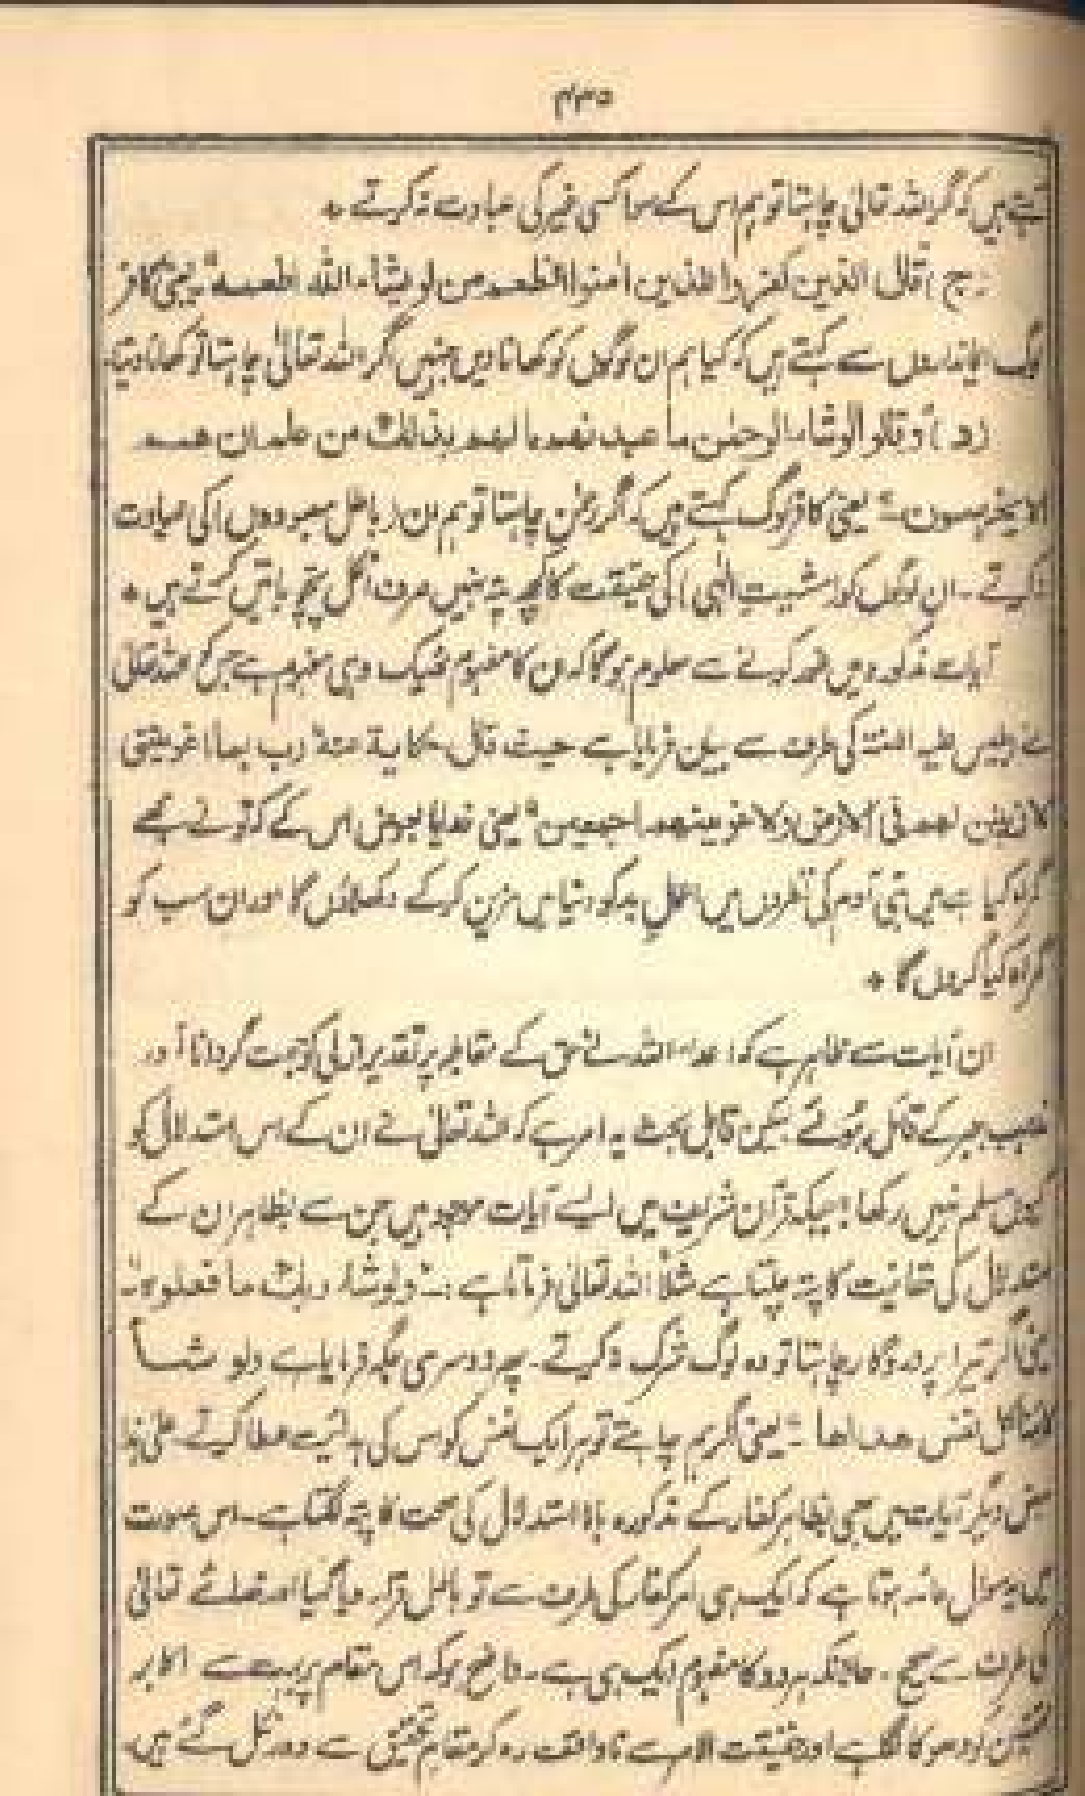 ۴۳۵
کہتے ہیں کہ اگر اللہ تعالیٰ چاہتا تو ہم اس کے سوا کسی غیر کی عبادت نہ کرتے *
(ج) قال الذین کفروا للذین اٰمنوا انطعم من لو یشاء اللہ اطعمہ ۔ یعنی کافر
لوگ ایمانداروں سے کہتے ہیں کہ کیا ہم ان لوگوں کو کھانا دیں جنہیں اگر اللہ تعالیٰ چاہتا تو کھانا دیتا۔
(د) وقالوا لو شاء الرحمٰن ما عبدنٰھم ما لھم بذالک من علم ان ھم
الا یخرصون ۔ یعنی کافر لوگ کہتے ہیں کہ اگر رحمٰن چاہتا تو ہم ان (باطل معبودوں) کی عبادت
نہ کرتے ۔ ان لوگوں کو (مشیت الٰہی) کی حقیقت کا کچھ پتہ نہیں صرف اٹکل پچو باتیں کرتے ہیں *
آیات مذکورہ میں غور کرنے سے معلوم ہوگا کہ ان کا مفہوم ٹھیک وہی مفہوم ہے جس کو اللہ تعالیٰ
نے ابلیس علیہ اللعنۃ کی طرف سے بیان فرمایا ہے حیث قال حکایۃ عنہ رب بما اغویتنی
لازینن لھم فی الارض ولاغوینھم اجمعین ۔ یعنی خدایا بعوض اس کے کہ تو نے مجھے
گمراہ کیا ہے میں بنی آدم کی نظروں میں اعمال بد کو دنیا میں مزین کرکے دکھلاؤں گا اور ان سب کو
گمراہ کیا کروں گا *
ان آیات سے ظاہر ہے کہ اعداء اللہ نے حق کے مقابلہ پر تقدیر ازلی کو حجت گردانا اور
مذہب جبر کے قائل ہوئے لیکن قابل بحث یہ امر ہے کہ اللہ تعالیٰ نے ان کے اس استدلال کو
کیوں مسلم نہیں رکھا ؟ جبکہ قرآن شریف میں ایسے آیات موجود ہیں جن سے بظاہر ان کے
استدلال کی حقانیت کا پتہ چلتا ہے مثلاً اللہ تعالیٰ فرماتا ہے :۔ ولو شاء ربک ما فعلوہ
یعنی اگر تیرا پروردگار چاہتا تو وہ لوگ شرک نہ کرتے ۔ پھر دوسری جگہ فرمایا ہے ولو شئنا
لاٰتینا کل نفس ھداھا ۔ یعنی اگر ہم چاہتے تو ہر ایک نفس کو اس کی ہدایت عطا کرتے ۔ علیٰ ہذا
بعض دیگر آیات میں بھی بظاہر کفار کے مذکورہ بالا استدلال کی صحت کا پتہ لگتا ہے ۔ اس صورت
میں یہ سوال عائد ہوتا ہے کہ ایک ہی امر کفار کی طرف سے تو باطل قرار دیا گیا اور خدائے تعالیٰ
کی طرف سے صحیح ۔ حالانکہ ہر دو کا مفہوم ایک ہی ہے ۔ واضح ہو کہ اس مقام پر بہت سے اکابر
کو دھوکا لگا ہے اور حقیقت الامر سے ناواقف رہ کر مقام تحقیق سے دور نکل گئے ہیں۔